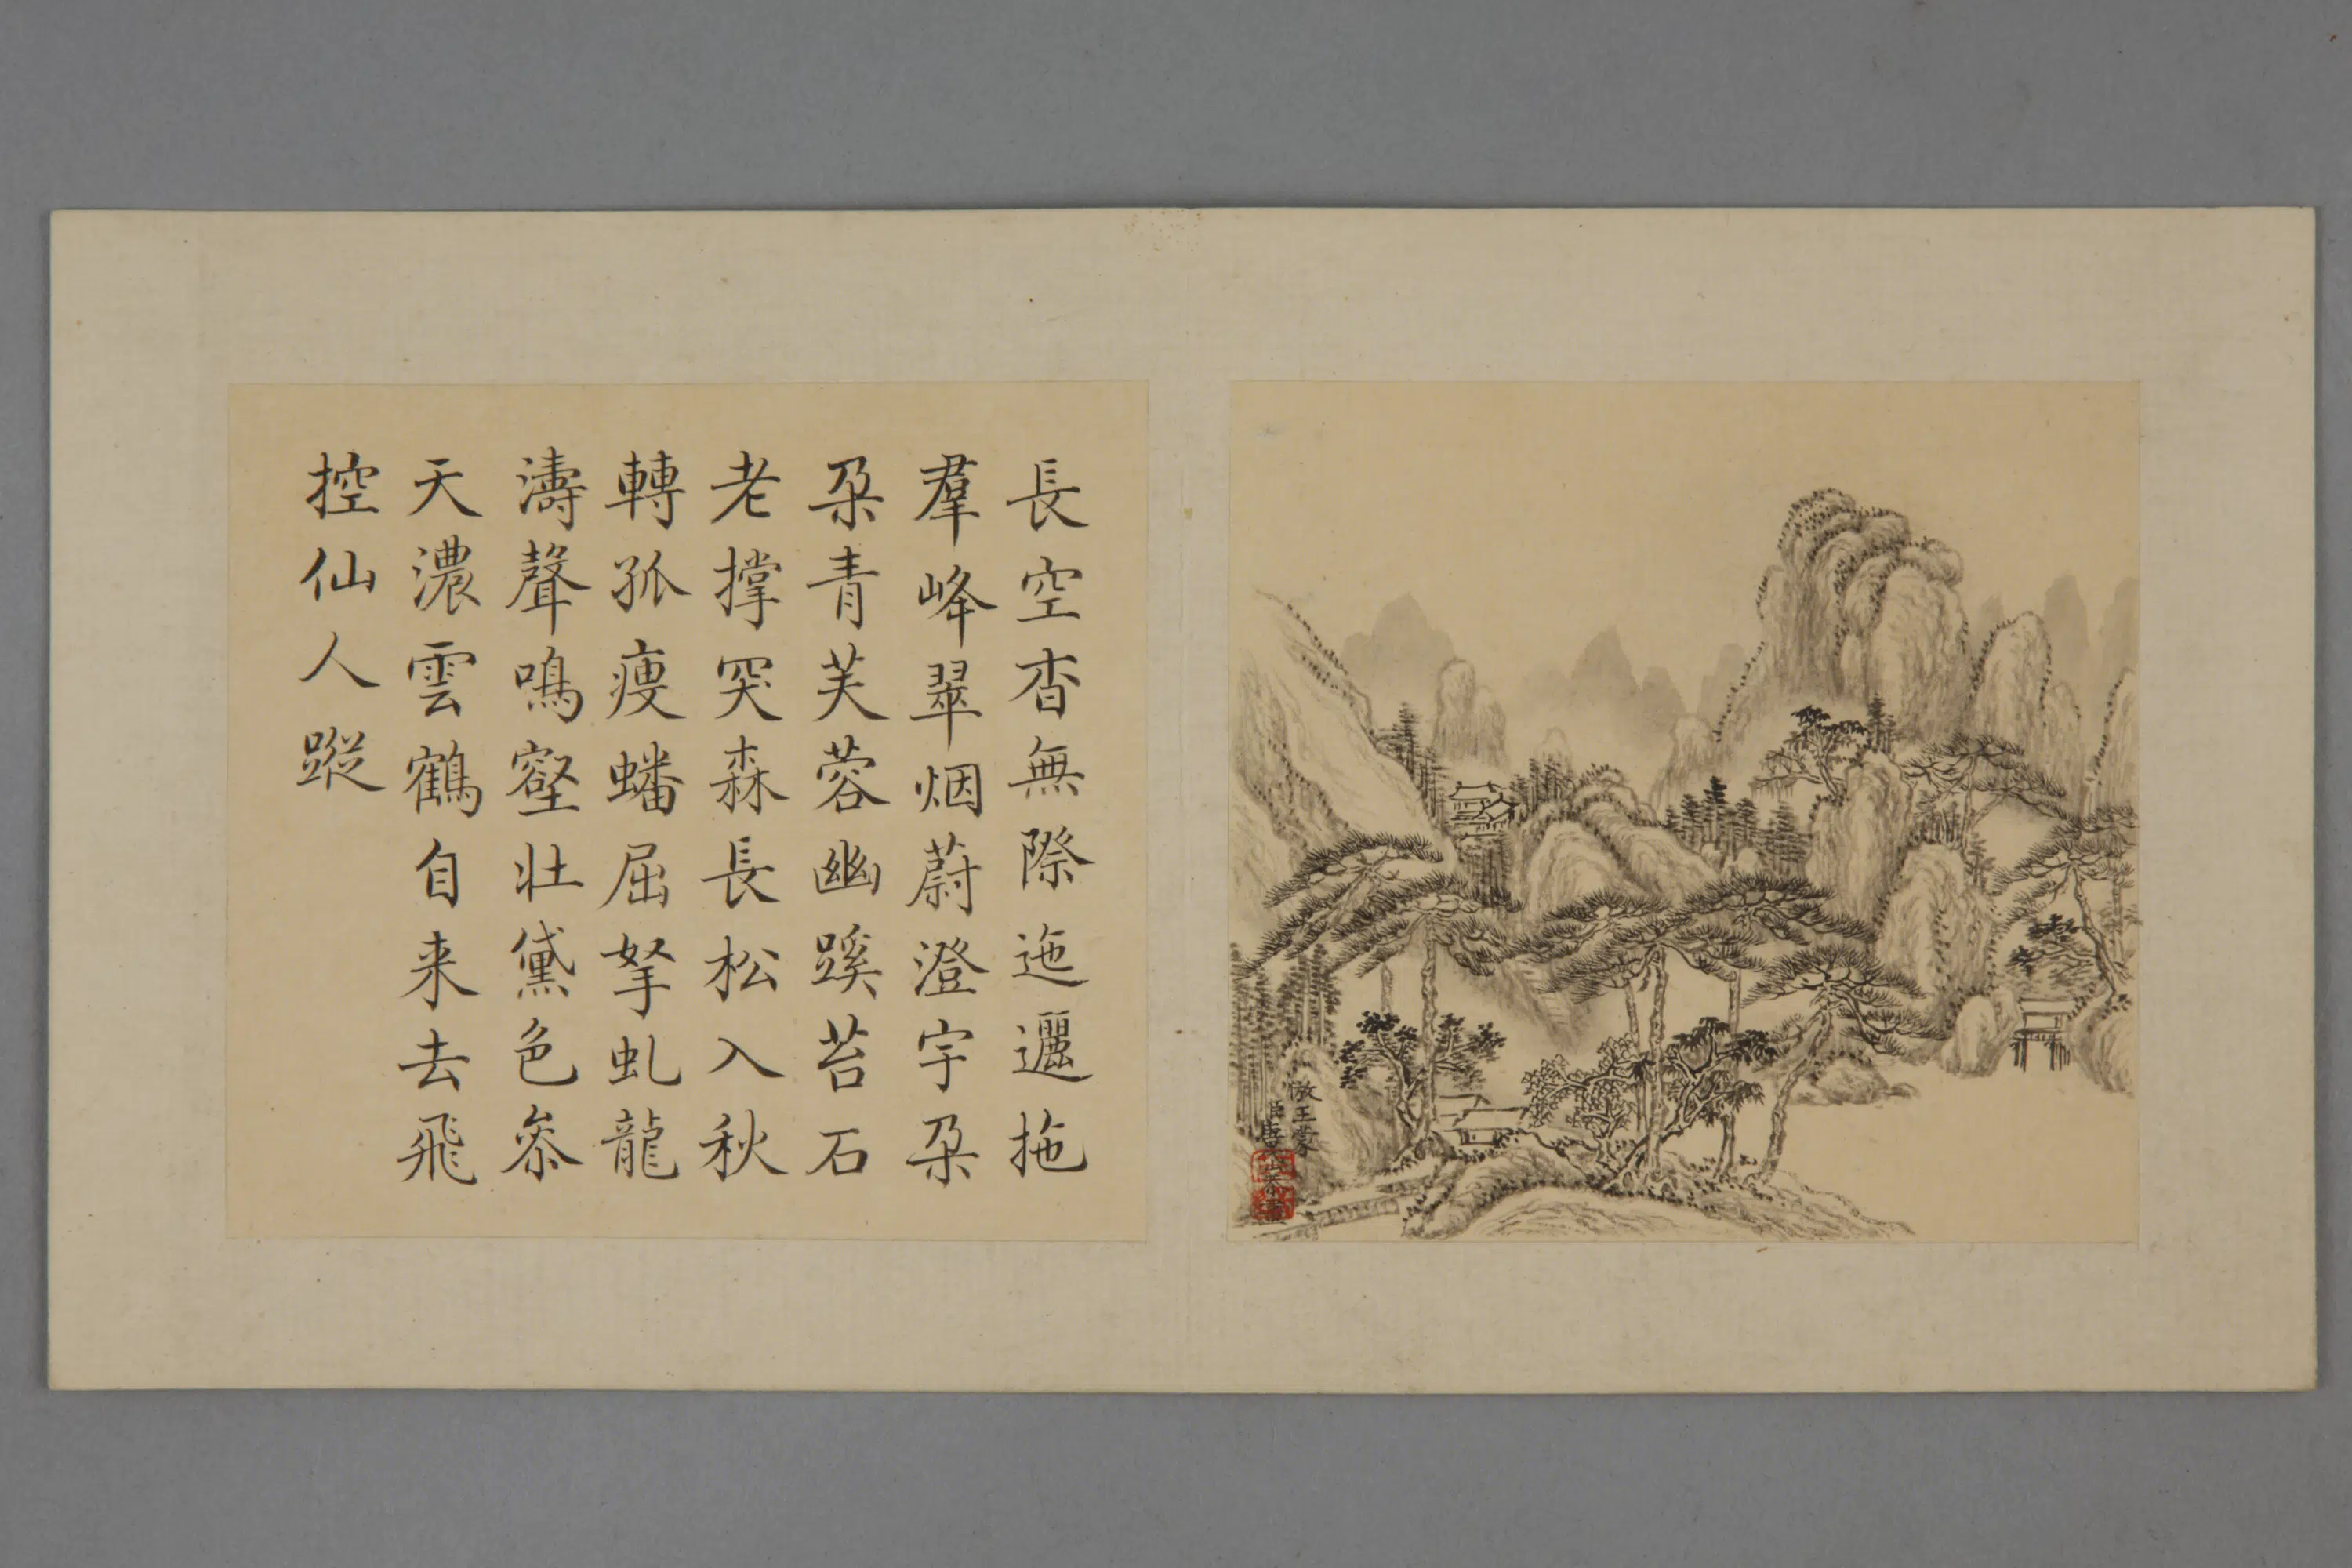 長空杳無際迤邐拖
羣峰翠烟蔚澄宇朶
朶青芙蓉幽蹊苔石
老撐突森長松入秋
轉孤瘦蟠屈拏虬龍
濤聲鳴壑壯黛色叅
天濃雲鶴自来去飛
控仙人蹤
倣王蒙
臣唐岱